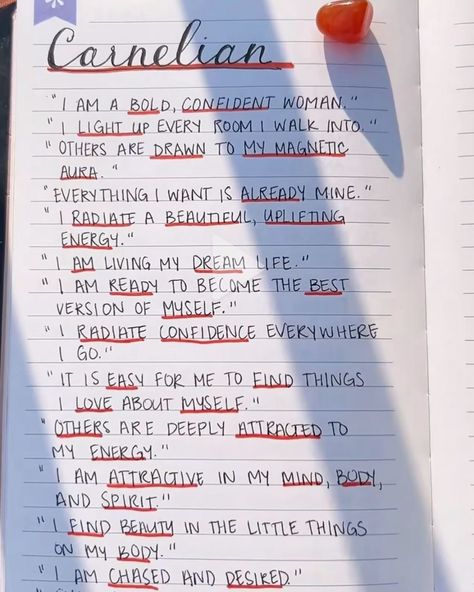 Carnelian
"I AM A BOLD, CONFIDENT WOMAN."
"I LIGHT UP EVERY ROOM I WALK INTO."
"OTHERS ARE DRAWN TO MY MAGNETIC
AURA."
"EVERYTHING I WANT IS ALREADY MINE."
"I RADIATE A BEAUTIFUL, UPLIFTING
ENERGY."
"I AM LIVING MY DREAM LIFE."
"I AM READY TO BECOME THE BEST
VERSION OF MYSELF."
"I RADIATE CONFIDENCE EVERYWHERE
I GO."
"IT IS EASY FOR ME TO FIND THINGS
I LOVE ABOUT MYSELF."
"OTHERS ARE DEEPLY ATTRACTED TO
MY ENERGY."
"I AM ATTRACTIVE IN MY MIND, BODY,
AND SPIRIT."
"I FIND BEAUTY IN THE LITTLE THINGS
ON MY BODY."
"I AM CHASED AND DESIRED."